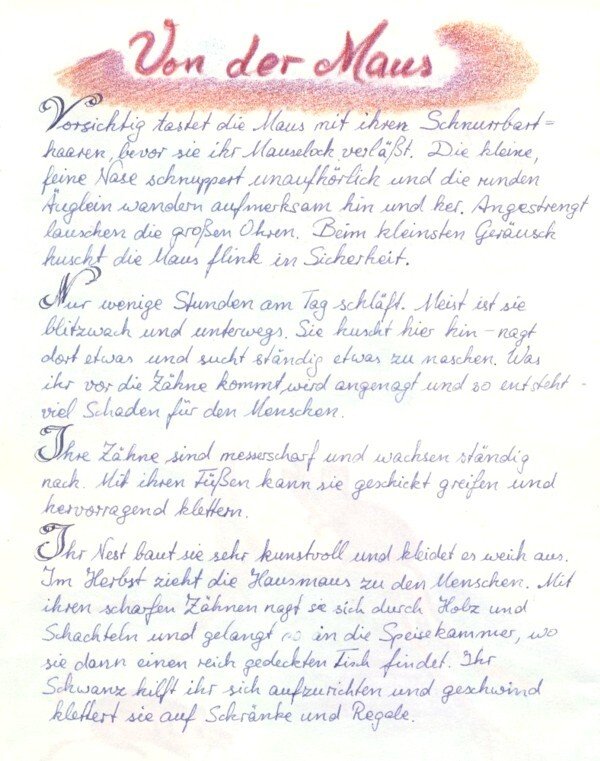 Von der Maus
Vorsichtig tastet die Maus mit ihren Schnurrbart=
haaren, bevor sie ihr Mauseloch verläßt. Die kleine,
feine Nase schnuppert unaufhörlich und die runden
Äuglein wandern aufmerksam hin und her. Angestrengt
lauschen die großen Ohren. Beim kleinsten Geräusch
huscht die Maus flink in Sicherheit.
Nur wenige Stunden am Tag schläft. Meist ist sie
blitzwach und unterwegs. Sie huscht hier hin - nagt
dort etwas und sucht ständig etwas zu naschen. Was
ihr vor die Zähne kommt, wird angenagt und so entsteht -
viel Schaden für den Menschen.
Ihre Zähne sind messerscharf und wachsen ständig
nach. Mit ihren Füßen kann sie geschickt greifen und
hervorragend klettern.
Ihr Nest baut sie sehr kunstvoll und kleidet es weich aus.
Im Herbst zieht die Hausmaus zu den Menschen. Mit
ihren scharfen Zähnen nagt sie sich durch Holz und
Schachteln und gelangt so in die Speisekammer, wo
sie dann einen reich gedeckten Tisch findet. Ihr
Schwanz hilft ihr sich aufzurichten und geschwind
klettert sie auf Schränke und Regale.